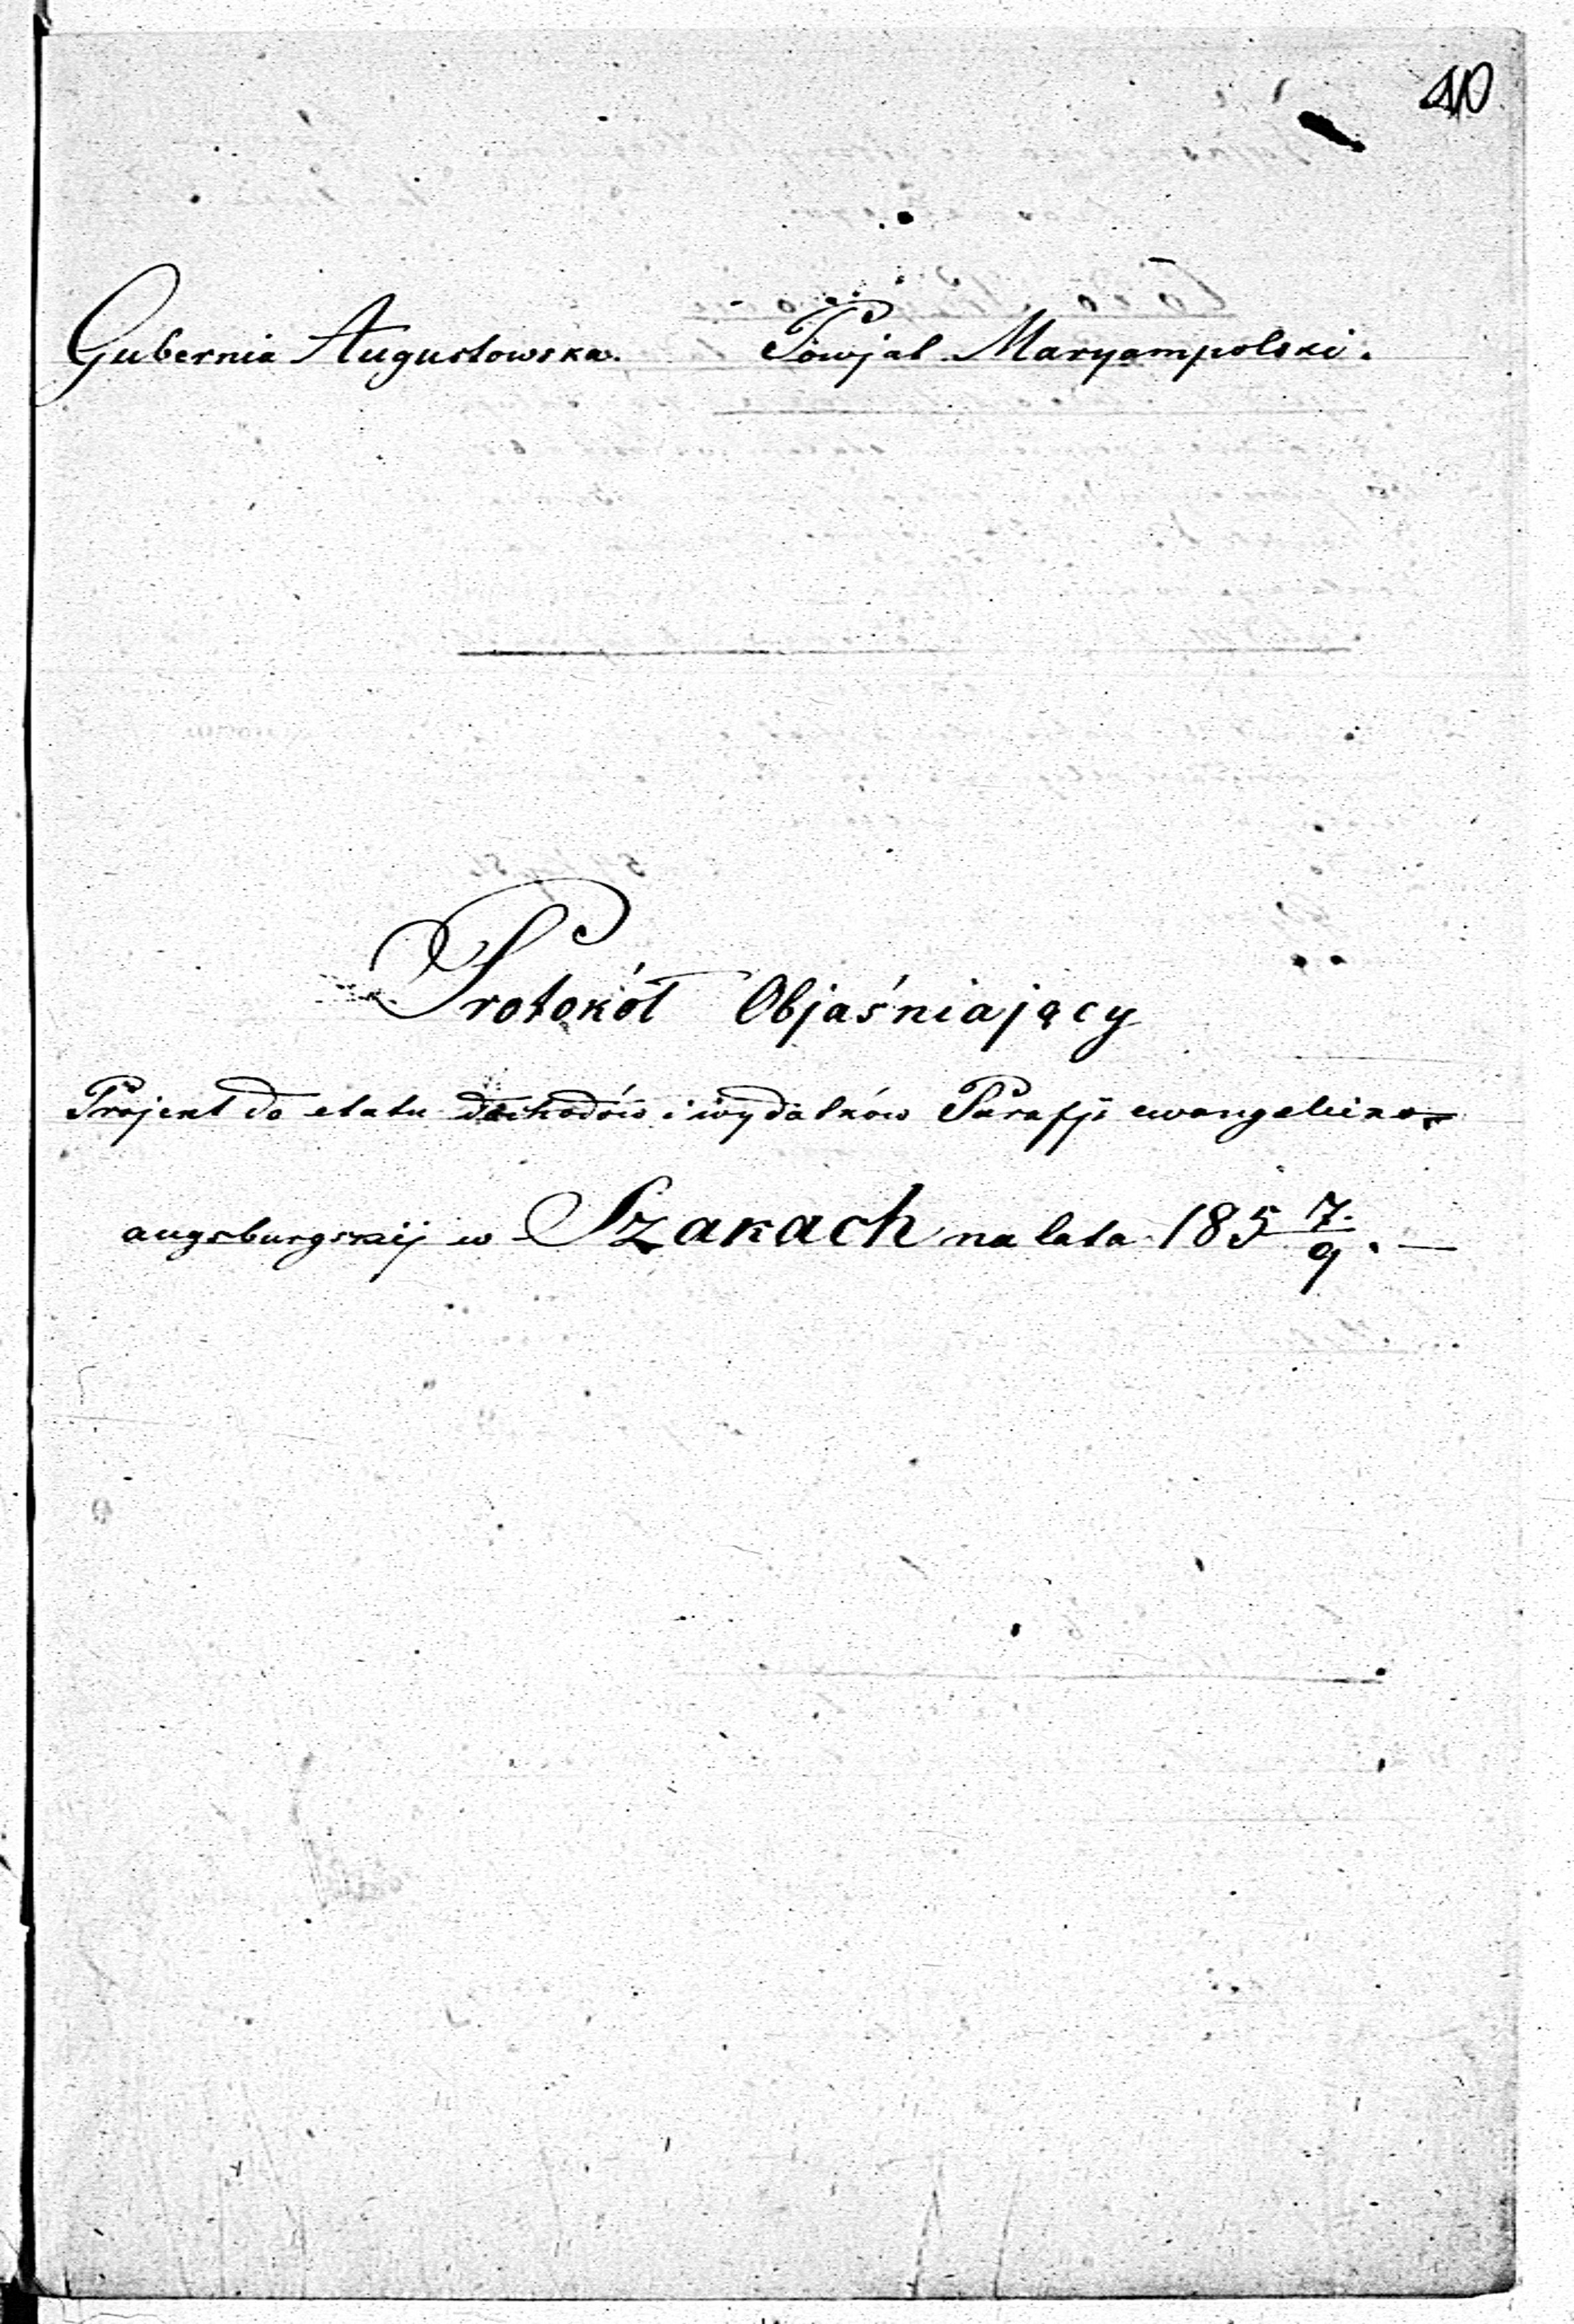 Gubernia Augustowska. Powjat Maryampolski.
Protokół Objaśniający
Projekt do etatu dochodów i wydatków Parafji ewangelicko-
augsburgskij w Szakach na lata 185 7/9. —